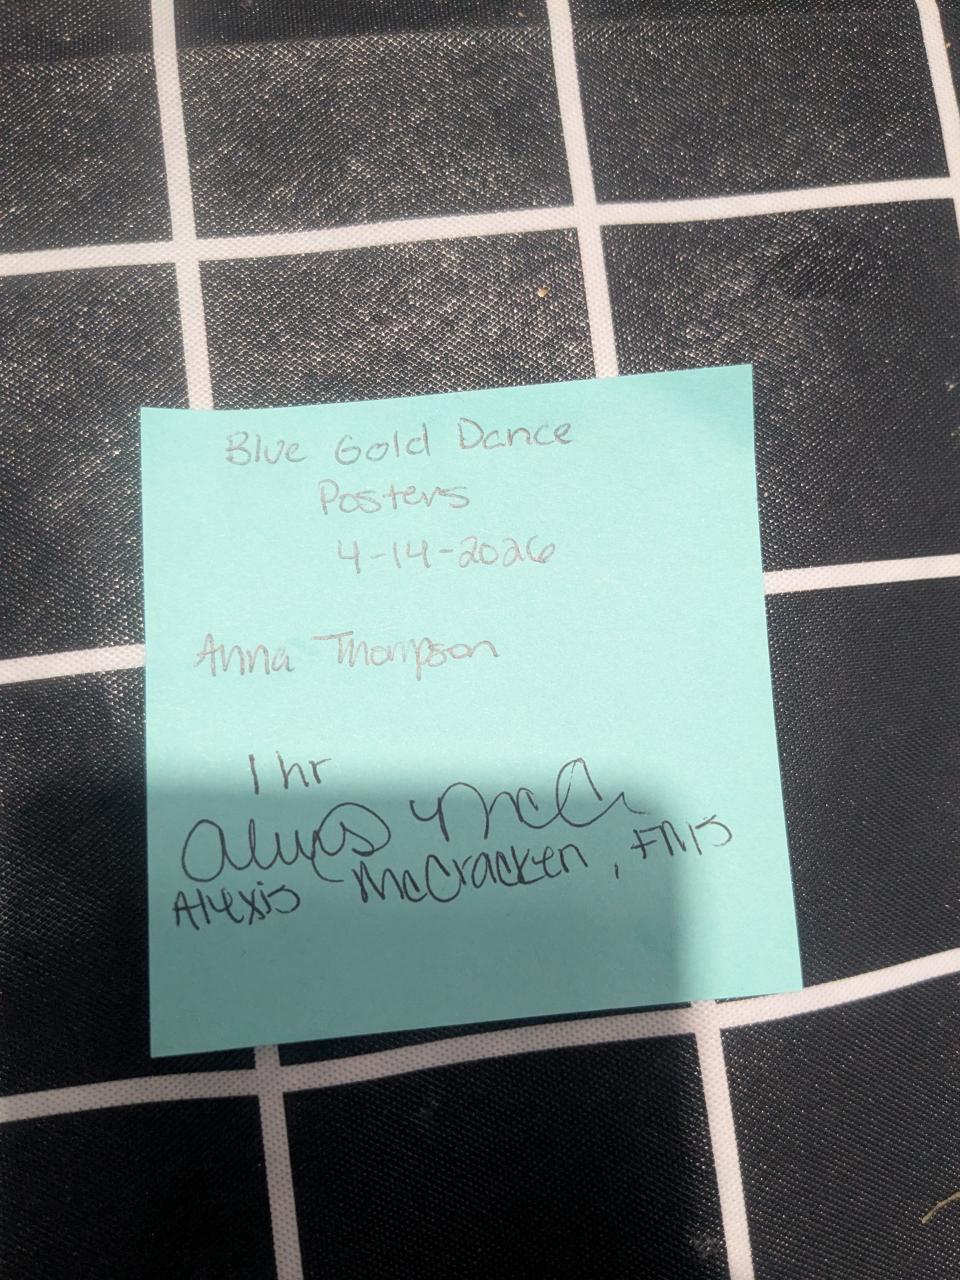 Blue Gold Dance
Posters
4-14-2026
Anna Thompson
1 hr
Alexis McC
Alexis McCracken,